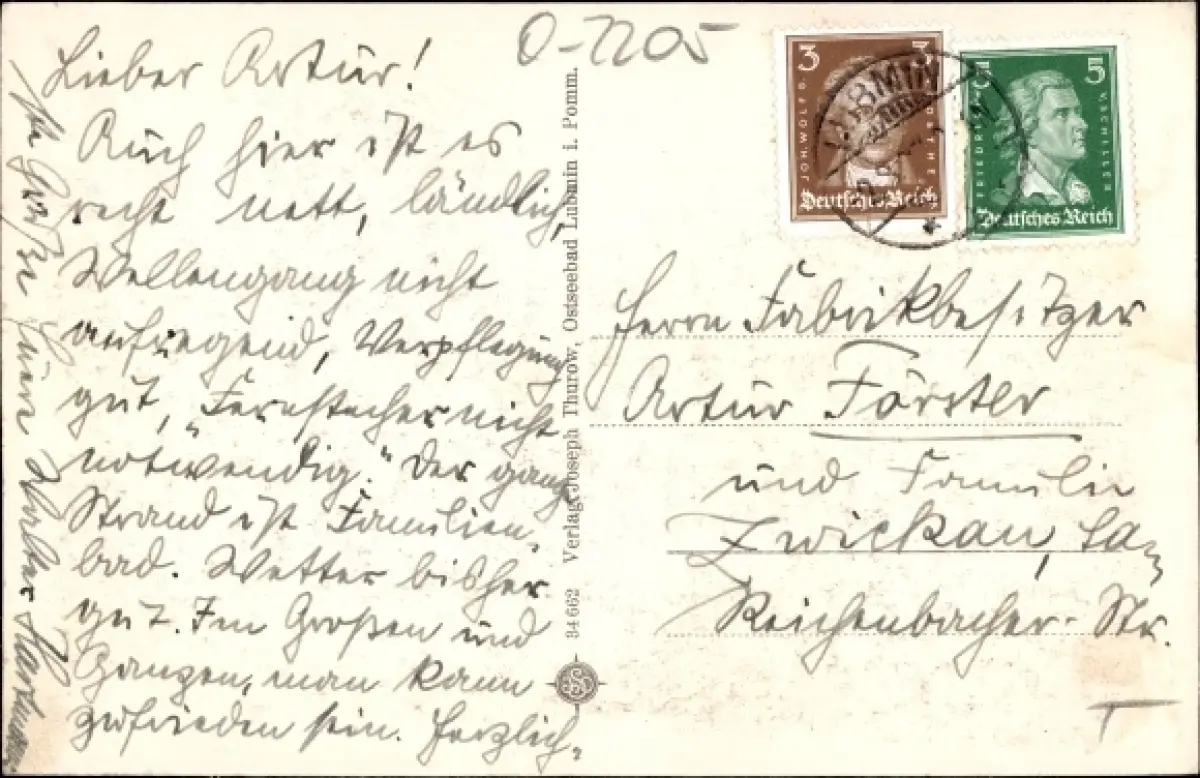 O-2205
Lieber Artur!
Auch hier ist es
recht nett, ländlich,
Wellengang nicht
aufregend, Verpflegung
gut, „Fernstecher nicht
notwendig." Der ganze
Strand ist Familien-
bad. Wetter bisher
gut. Im Großen und
Ganzen, man kann
zufrieden sein. Herzlich-
ste Grüße Euere Walter
34662 Verlag Joseph Thurow, Ostseebad Lubmin i. Pomm.
3
JOH. WOLFG. GOETHE
Deutsches Reich
5
FRIEDRICH V. SCHILLER
Deutsches Reich
LUBMIN
Herrn Fabrikbesitzer
Artur Förster
und Familie
Zwickau, Sa.
Reichenbacher-Str.